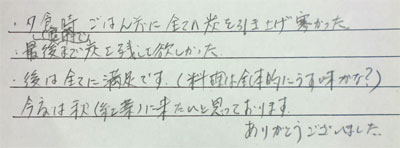 ・夕食時 ごはん前に全ての炭を引き上げ寒かった
・最後まで炭を残して欲しかった
・後は全てに満足です。(料理は全体的にうす味かな?)
今度は秋(紅葉)に来たいと思っております。
ありがとうございました。